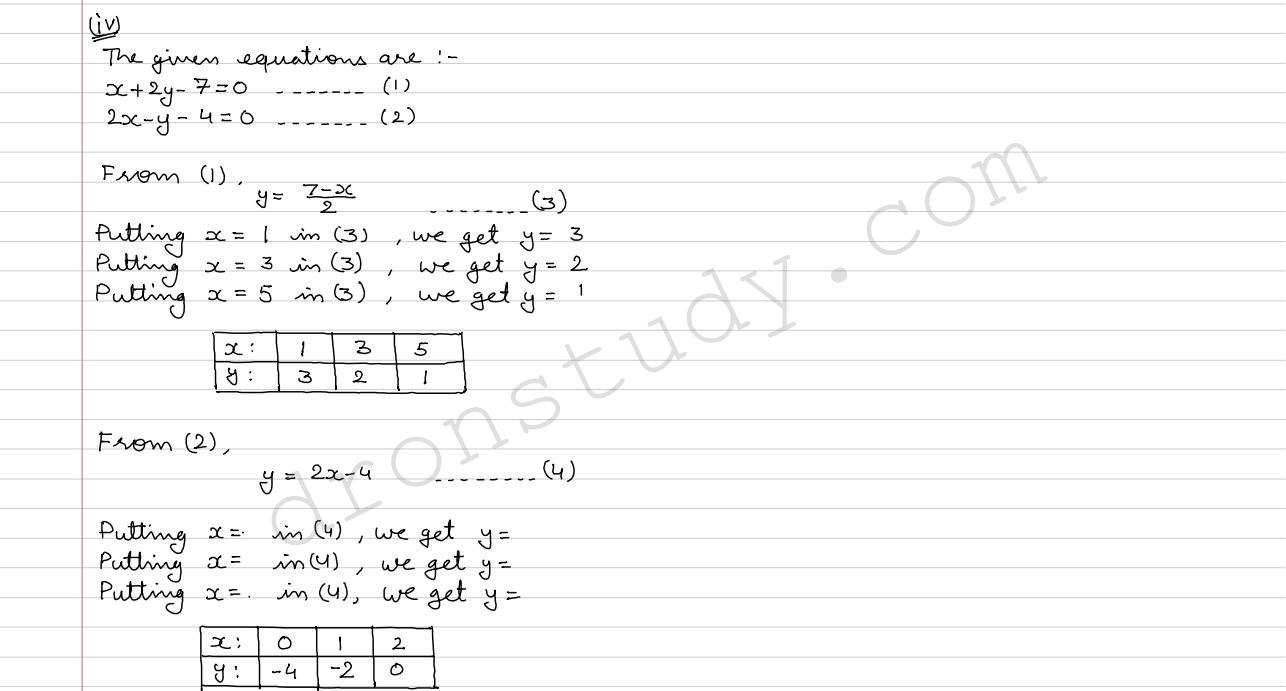 (iv)
The given equations are :-
x+2y-7=0 ------- (1)
2x-y-4=0 ------- (2)
From (1),
y= 7-x/2 -------- (3)
Putting x= 1 in (3) , we get y= 3
Putting x = 3 in (3) , we get y = 2
Putting x = 5 in (3) , we get y = 1
x: 1 3 5
y: 3 2 1
From (2),
y = 2x-4 -------- (4)
Putting x= in (4) , we get y=
Putting x= in (4) , we get y=
Putting x= in (4), we get y=
x: 0 1 2
y: -4 -2 0
dronstudy.com